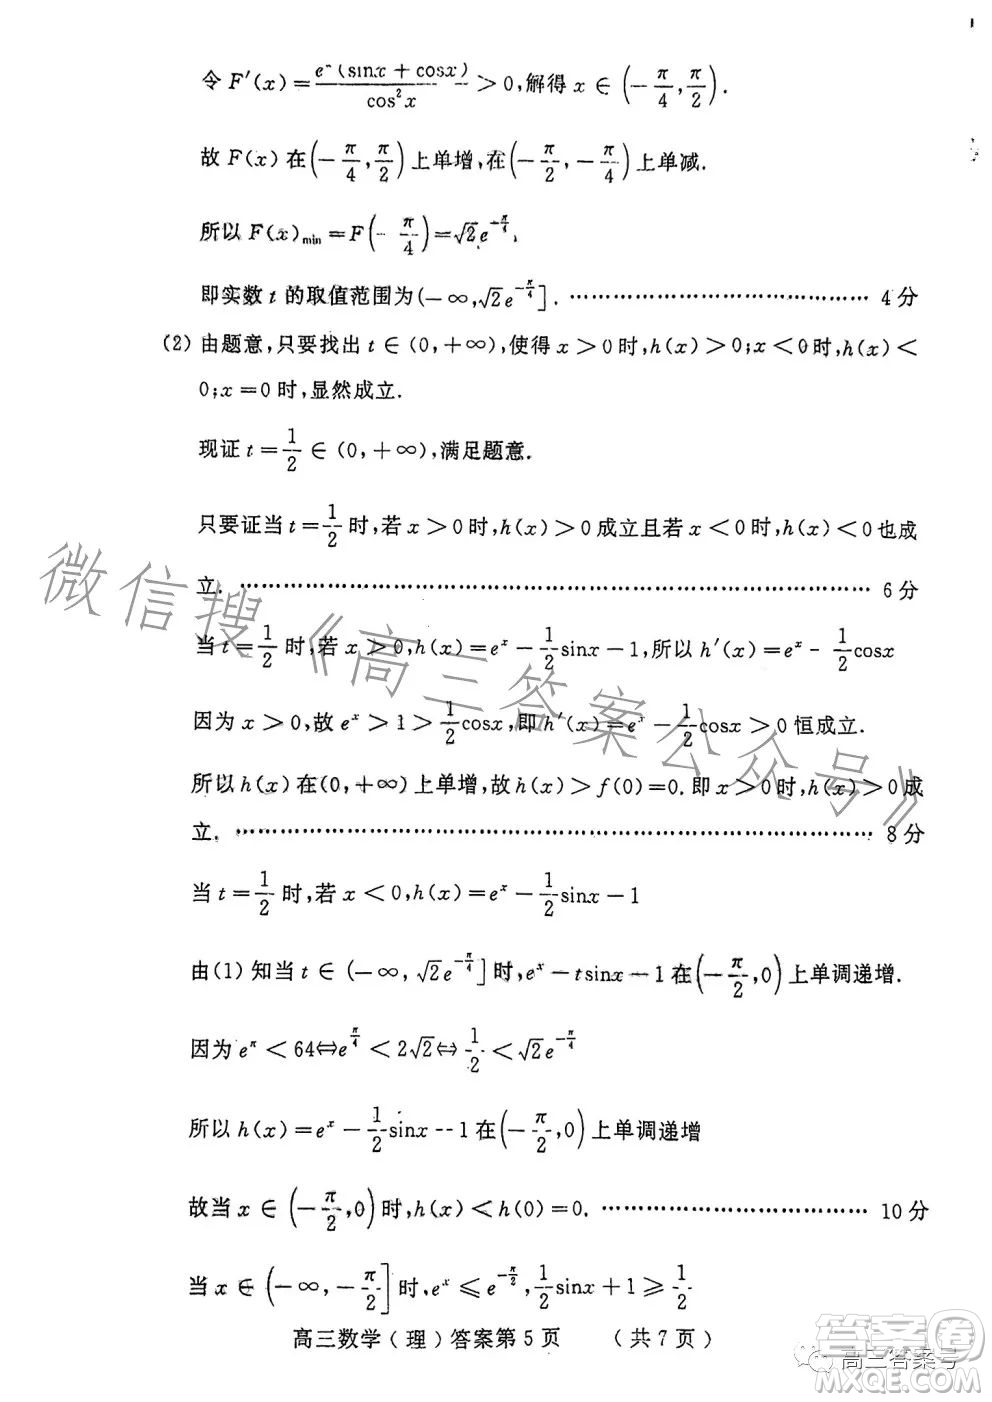 令 F′(x)=e^x(sinx+cosx)/cos²x>0,解得 x∈(-π/4,π/2).
故 F(x)在(-π/4,π/2)上单增,在(-π/2,-π/4)上单减.
所以 F(x)min=F(-π/4)=√2e^(-π/4),
即实数 t 的取值范围为(-∞,√2e^(-π/4)]. …………………………………… 4 分
(2) 由题意,只要找出 t∈(0,+∞),使得 x>0时,h(x)>0;x<0时,h(x)<
0;x=0时,显然成立.
现证 t=1/2∈(0,+∞),满足题意.
只要证当 t=1/2 时,若 x>0时,h(x)>0成立且若 x<0时,h(x)<0也成
立. …………………………………………………………………… 6 分
当 t=1/2 时,若 x>0,h(x)=e^x-1/2sinx-1,所以 h′(x)=e^x-1/2cosx
因为 x>0,故 e^x>1>1/2cosx,即 h′(x)=e^x-1/2cosx>0 恒成立.
所以 h(x)在(0,+∞)上单增,故 h(x)>f(0)=0.即 x>0时,h(x)>0成
立. …………………………………………………………………… 8 分
当 t=1/2 时,若 x<0,h(x)=e^x-1/2sinx-1
由(1)知当 t∈(-∞,√2e^(-π/4)]时,e^x-tsinx-1在(-π/2,0)上单调递增.
因为 e^π<64⇔e^(π/4)<2√2⇔1/2<√2e^(-π/4)
所以 h(x)=e^x-1/2sinx-1在(-π/2,0)上单调递增
故当 x∈(-π/2,0)时,h(x)<h(0)=0. ……………………………… 10 分
当 x∈(-∞,-π/2]时,e^x≤e^(-π/2),1/2sinx+1≥1/2
高三数学(理)答案第 5 页 (共 7 页)
微信搜《高三答案公众号》
答案圈
高三答案号